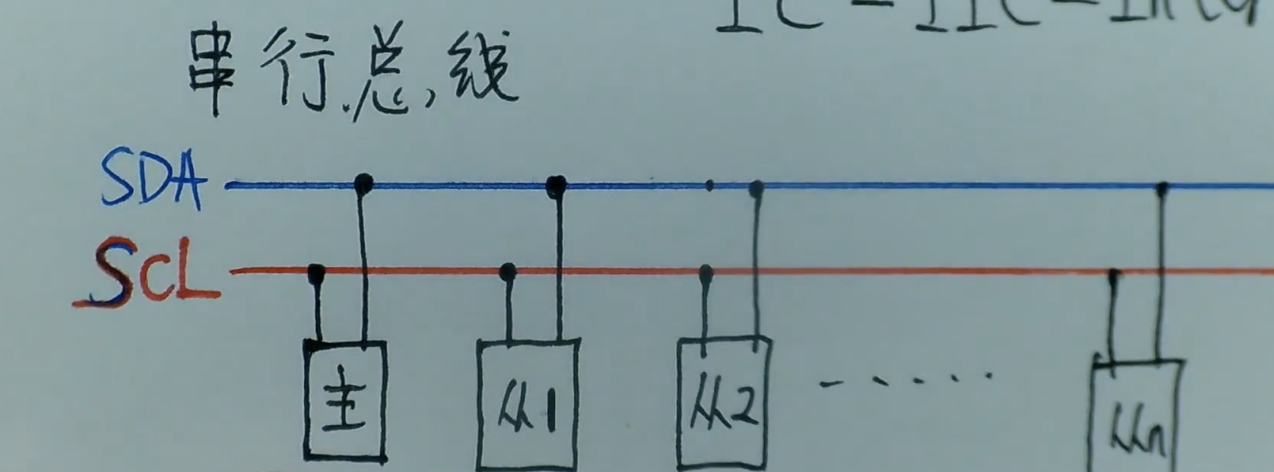 IC-IIC-Int
串行总线
SDA
SCL
主
从1
从2
从n